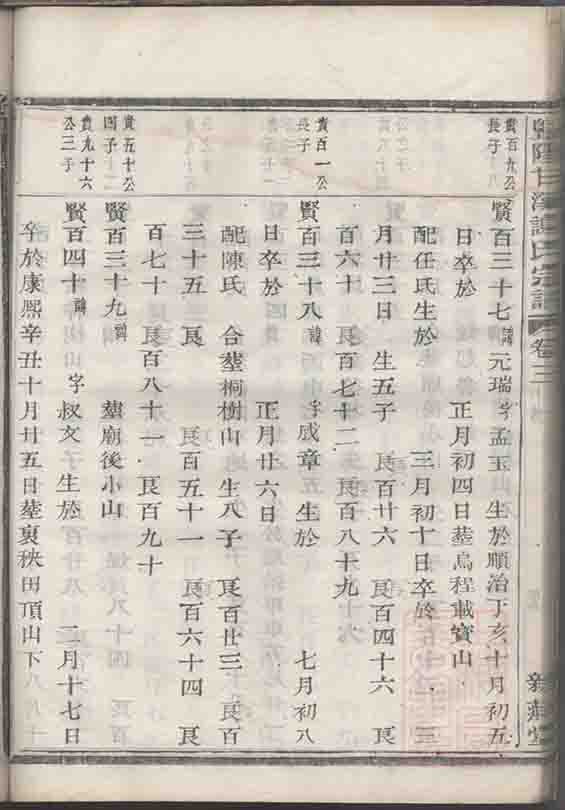 暨陽甘溪譚氏宗譜 卷三 新莊堂
貴百九公
長子
賢百三十七諱元瑞字孟玉 生於順治丁亥十月初五
日卒於 正月初四日塟烏程載寶山
配任氏生於 三月初十日卒於 三
月廿三日 生五子 艮百廿六 艮百四十六 艮
百六十 艮百七十二 艮百八十九
貴百一公
長子
賢百三十八諱 字威章 生於 七月初八
日卒於 正月廿六日
配陳氏 合塟桐樹山 生八子 艮百廿三 艮百
三十五 艮 艮百五十一 艮百六十四 艮
百七十 艮百八十一 艮百九十
貴五十公
四子
賢百三十九諱 塟廟後小山
貴九十六
公三子
賢百四十諱 字叔文 生於 二月十七日
卒於康熙辛丑十月廿五日塟裏秧田頂山下